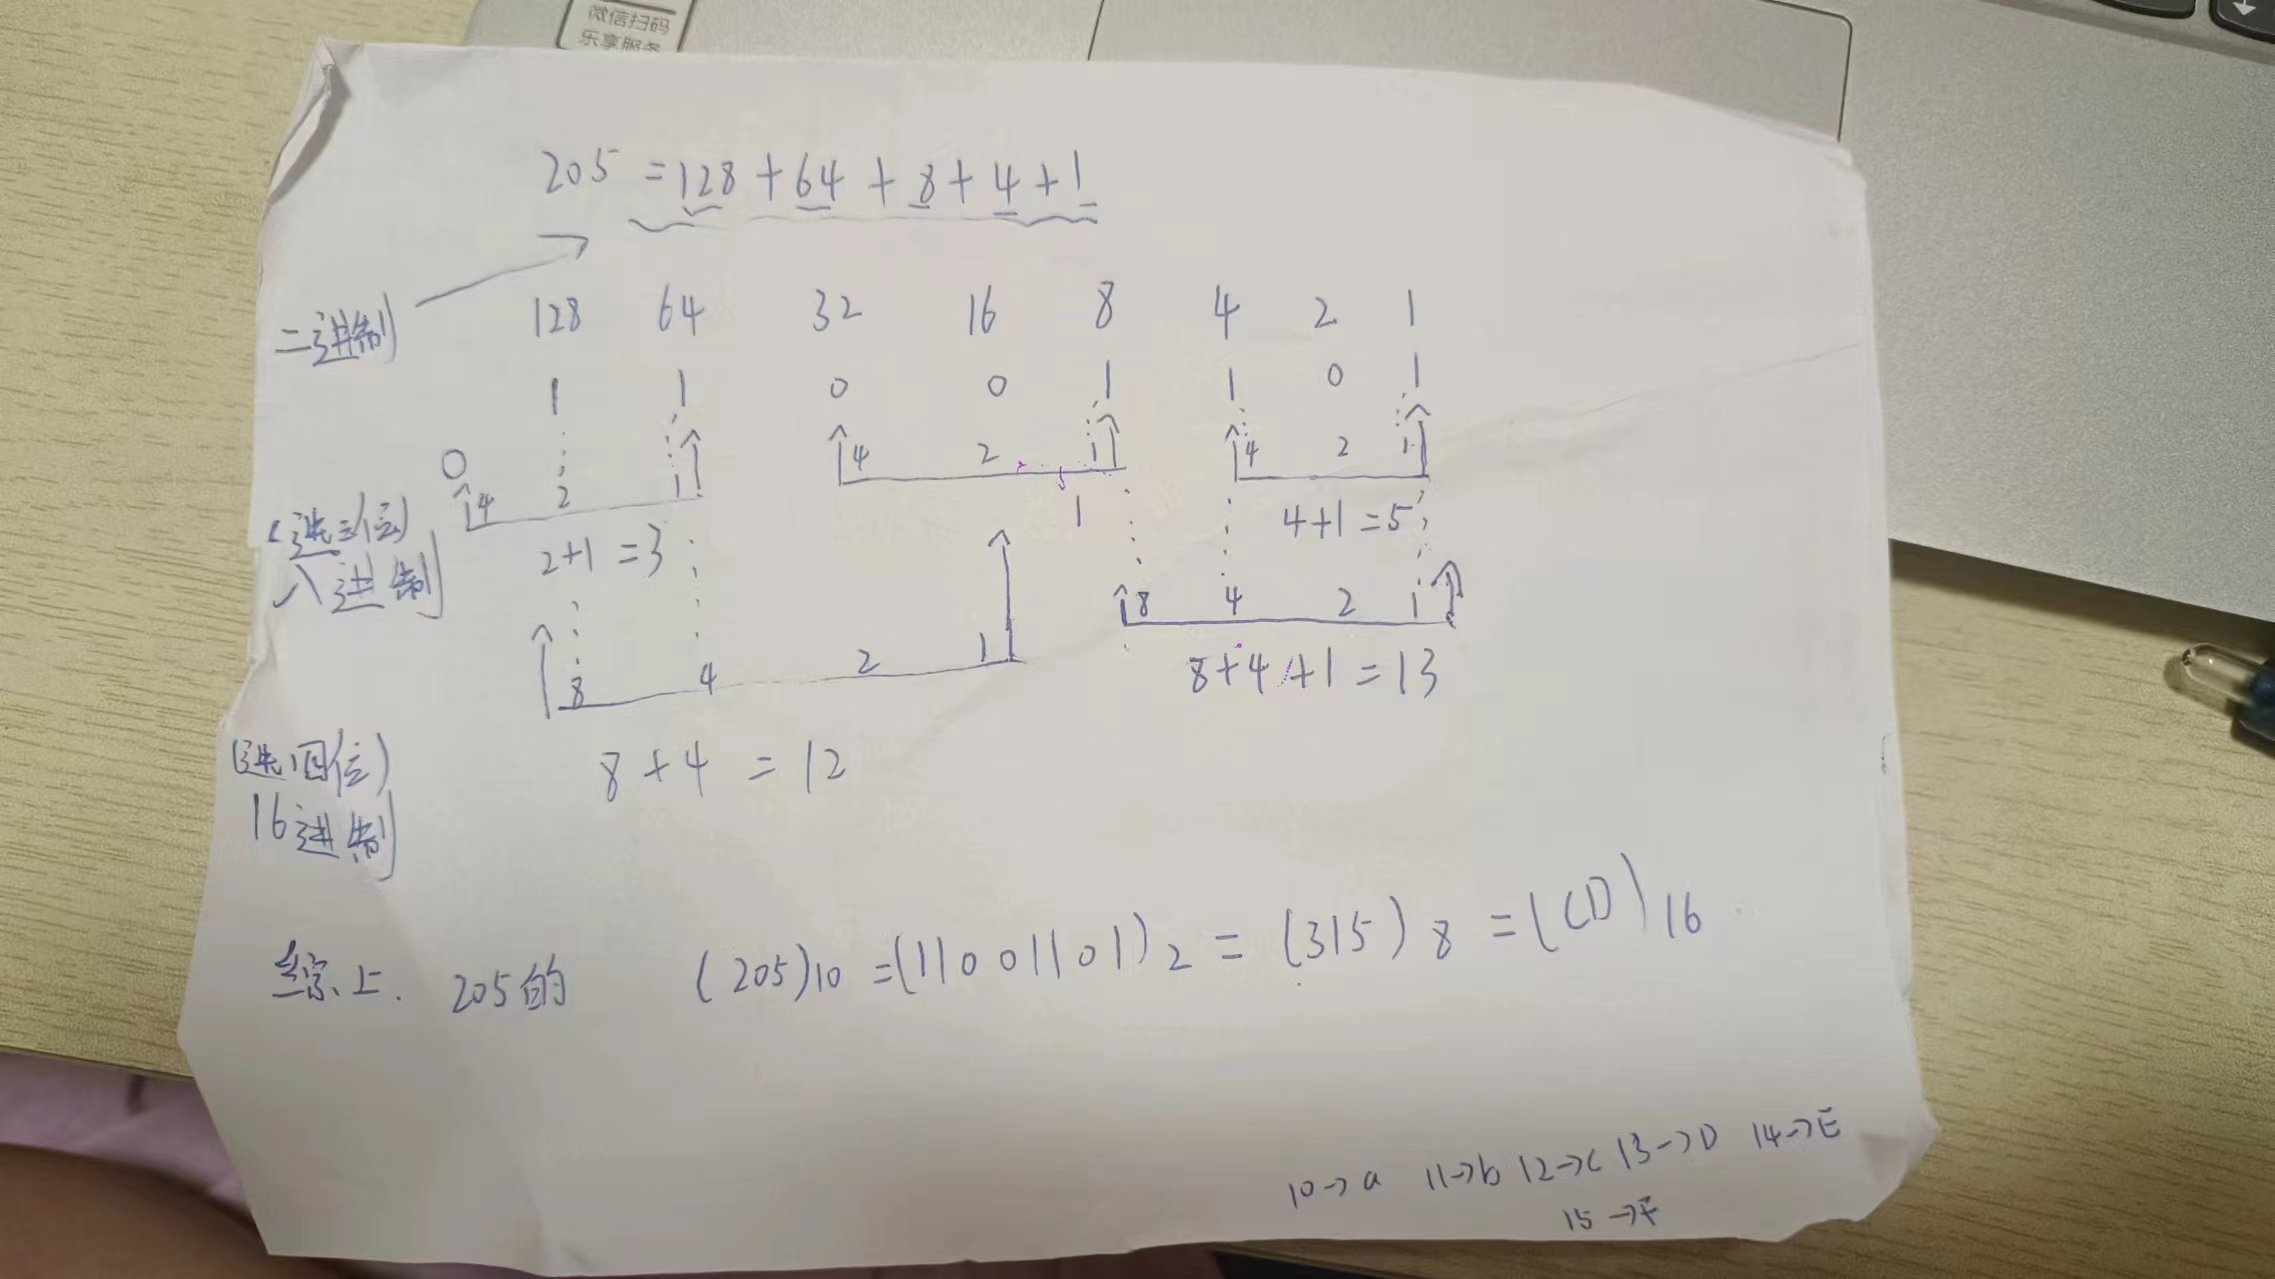 微信扫码
乐享服务
205 = 128 + 64 + 8 + 4 + 1
二进制
128 64 32 16 8 4 2 1
1 1 0 0 1 1 0 1
0
4 2 1 4 2 1 4 2 1
(选三位)
八进制
2+1 = 3
1
4+1 = 5
8 4 2 1
8 4 2 1
8+4+1 = 13
(选四位)
16进制
8 + 4 = 12
综上. 205的 (205)10 = (11001101)2 = (315)8 = (CD)16
10→a 11→b 12→c 13→D 14→E
15→F